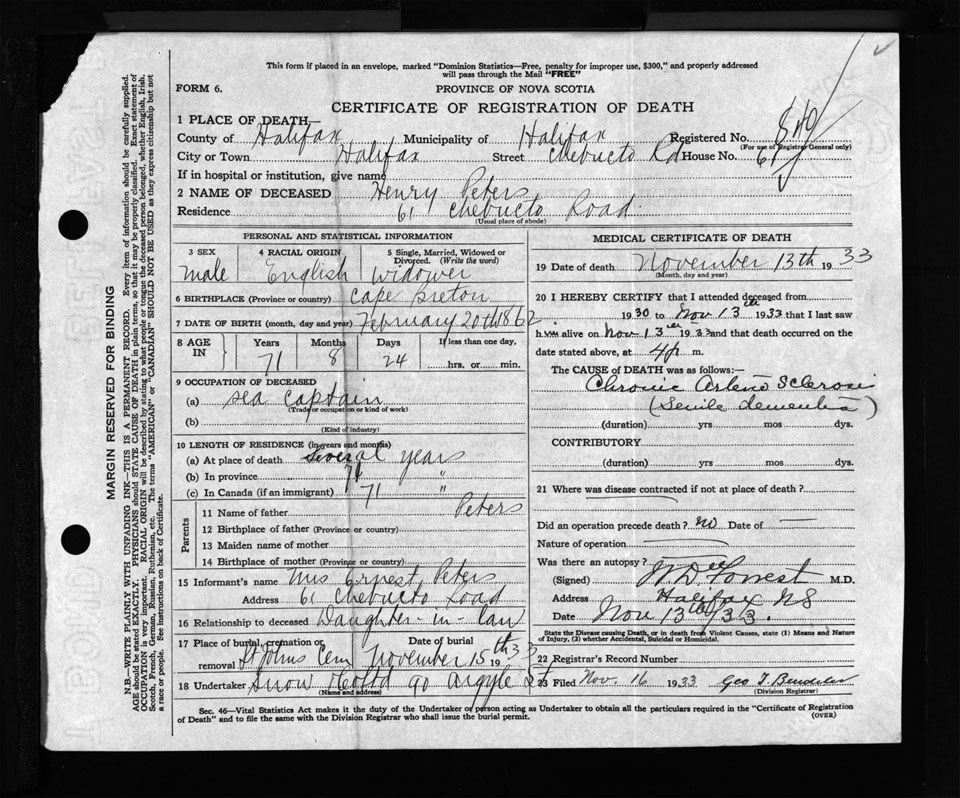 This form if placed in an envelope, marked "Dominion Statistics—Free, penalty for improper use, $300," and properly addressed
will pass through the Mail "FREE"
FORM 6.
PROVINCE OF NOVA SCOTIA
CERTIFICATE OF REGISTRATION OF DEATH
1 PLACE OF DEATH—
County of Halifax Municipality of Halifax Registered No.
(For use of Registrar General only)
City or Town Halifax Street Chebucto Rd House No. 61
If in hospital or institution, give name
2 NAME OF DECEASED Henry Peters
Residence 61 Chebucto Road
(Usual place of abode)
PERSONAL AND STATISTICAL INFORMATION
3 SEX 4 RACIAL ORIGIN 5 Single, Married, Widowed or Divorced. (Write the word)
male English Widower
6 BIRTHPLACE (Province or country) Cape Breton
7 DATE OF BIRTH (month, day and year) February 20th 1862
8 AGE IN Years Months Days If less than one day,
71 8 24 hrs. or min.
9 OCCUPATION OF DECEASED
(a) Sea Captain
(Trade or occupation or kind of work)
(b)
(Kind of industry)
10 LENGTH OF RESIDENCE (in years and months)
(a) At place of death Several years
(b) In province 71 "
(c) In Canada (if an immigrant) 71 "
Parents
11 Name of father Peters
12 Birthplace of father (Province or country)
13 Maiden name of mother
14 Birthplace of mother (Province or country)
15 Informant's name Mrs Ernest Peters
Address 61 Chebucto Road
16 Relationship to deceased Daughter-in-law
17 Place of burial, cremation or removal St Johns Cem Date of burial November 15th 1933
18 Undertaker Snow & Co Ltd 90 Argyle St
(Name and address)
MEDICAL CERTIFICATE OF DEATH
19 Date of death November 13th 1933
(Month, day and year)
20 I HEREBY CERTIFY that I attended deceased from
1930 to Nov 13th 1933 that I last saw
him alive on Nov 13th 1933 and that death occurred on the
date stated above, at 4 p m.
The CAUSE of DEATH was as follows:—
Chronic Arterio Sclerosis
(Senile dementia)
(duration) yrs mos dys.
CONTRIBUTORY
(duration) yrs mos dys.
21 Where was disease contracted if not at place of death?
Did an operation precede death? No Date of —
Nature of operation —
Was there an autopsy?
(Signed) W D Forrest M.D.
Address Halifax NS
Date Nov 13th/33.
State the Disease causing Death, or in death from Violent Causes, state (1) Means and Nature
of Injury, (2) whether Accidental, Suicidal or Homicidal.
22 Registrar's Record Number
23 Filed Nov. 16 1933 Geo T.
(Division Registrar)
Sec. 46—Vital Statistics Act makes it the duty of the Undertaker or person acting as Undertaker to obtain all the particulars required in the "Certificate of Registration
of Death" and to file the same with the Division Registrar who shall issue the burial permit.
(OVER)
MARGIN RESERVED FOR BINDING
N.B.—WRITE PLAINLY WITH UNFADING INK—THIS IS A PERMANENT RECORD. Every item of information should be carefully supplied.
AGE should be stated EXACTLY. PHYSICIANS should STATE CAUSE OF DEATH in plain terms, so that it may be properly classified. Exact statement of
OCCUPATION is very important. RACIAL ORIGIN will be described by stating to what people or tongue the deceased person belonged, whether English, Irish,
Scotch, French, German, Russian, Ruthenian, etc. The terms "AMERICAN" or "CANADIAN" SHOULD NOT BE USED as they express citizenship but not
a race or people. See instructions on back of Certificate.